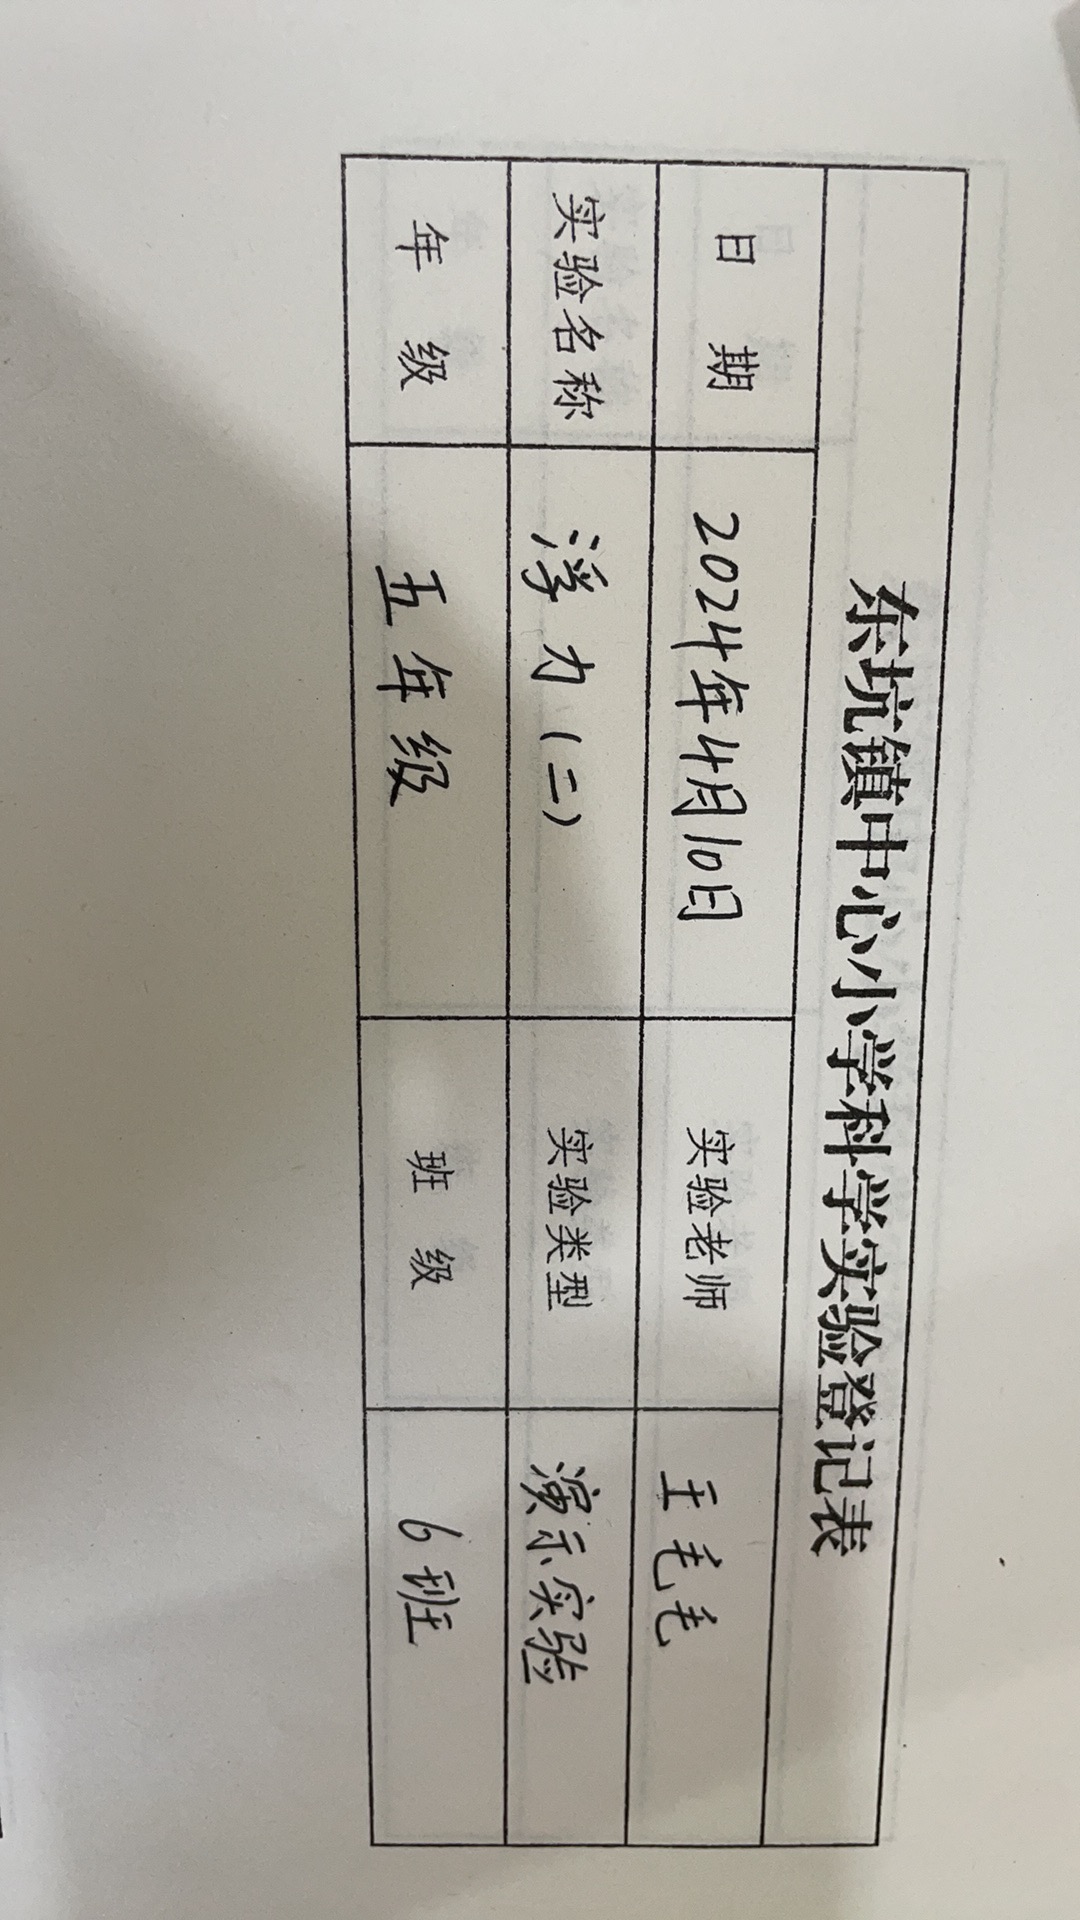 东坑镇中心小学科学实验登记表
日 期 2024年4月10日 实验老师 王毛毛
实验名称 浮力(二) 实验类型 演示实验
年 级 五年级 班 级 6班